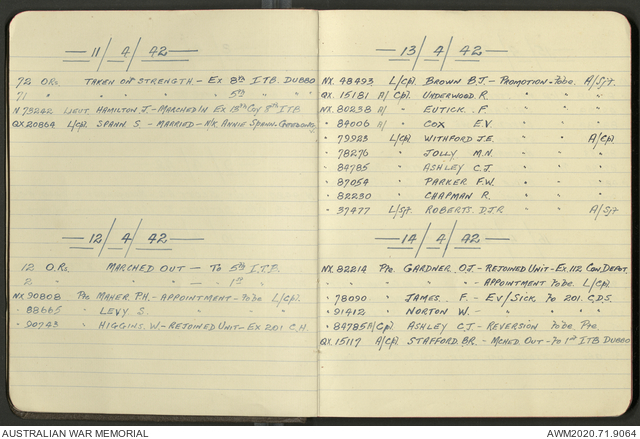 11/4/42
72 O.Rs. TAKEN ON STRENGTH - Ex 8th I.T.B. DUBBO
71 " " " " 5th " " "
N 73242 LIEUT. HAMILTON J. - MARCHED IN Ex 13th Coy 8th I.T.B
QX 20864 L/Cpl. SPANN S. - MARRIED - N/K ANNIE SPANN - GEEBUNG
12/4/42
12 O.Rs. MARCHED OUT - To 5th I.T.B.
2 " " " - 1st "
NX 90808 Pte MAHER P.H. - APPOINTMENT - To be L/Cpl.
" 88665 " LEVY S. " " "
" 90743 " HIGGINS. W - REJOINED UNIT - Ex 201 C.H.
13/4/42
NX. 48493 L/Cpl. BROWN B.J. - PROMOTION - To be A/Sjt.
QX. 15181 A/Cpl. UNDERWOOD. R. " " "
NX. 80238 A/ " EUTICK. F. " " "
" 84006 A/ " COX E.V. " " "
" 79923 L/Cpl. WITHFORD J.E. " " A/Cpl.
" 78276 " JOLLY M.N. " " "
" 84785 " ASHLEY C.J. " " "
" 87054 " PARKER F.W. " " "
" 82230 " CHAPMAN R. " " "
" 37477 L/Sjt. ROBERTS. D.J.R " " A/Sjt.
14/4/42
NX. 82214 Pte. GARDNER. O.J. - REJOINED UNIT - Ex. 112 CON. DEPOT.
" " " " - APPOINTMENT To be. L/Cpl.
" 78090 " JAMES. F. - EV/SICK To 201. C.D.S.
" 91412 " NORTON W. - " " "
" 84785 A/Cpl. ASHLEY C.J - REVERSION To be Pte
QX. 15117 A/Cpl. STAFFORD. B.R. - MCHED. OUT - To 1st I.T.B DUBBO
AUSTRALIAN WAR MEMORIAL
AWM2020.71.9064